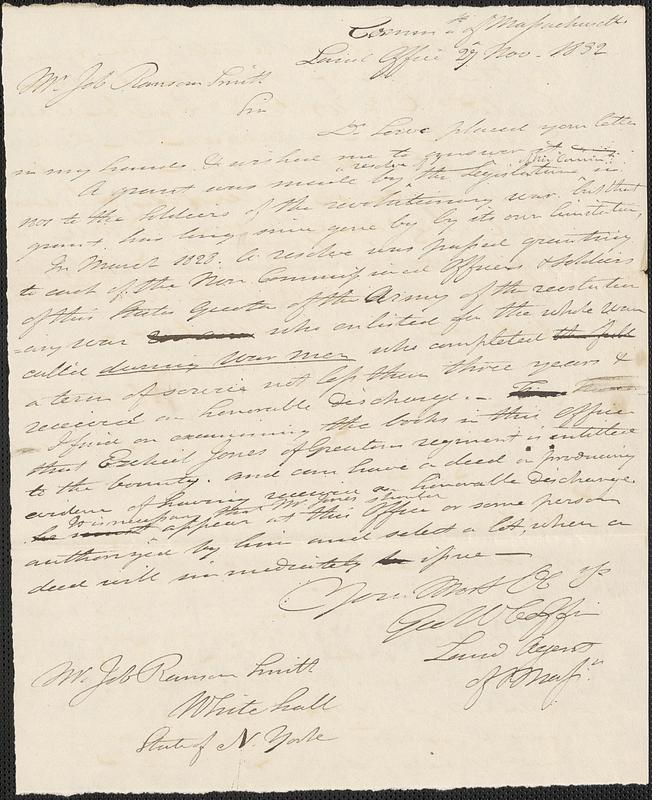 Comm^th of Massachusetts
Land Office 27 Nov. 1832
Mr Job Ransom Smith
Sir
Dr Lowe placed your letter
in my hands & wished me to answer it
A grant was made by a resolve of the Legislature of this Comm^th in
to the Soldiers of the revolutionary war but that
grant has long since gone by by its own limitation,
In March 1828, a resolve was passed granting
to each of the Non Commissioned Officers & Soldiers
of this States Quota of the Army of the revolution
=ary war who enlisted for the whole war
called during War men who completed the full
a term of service not less than three years &
received an honorable discharge. —
I find on examining the books in this Office
that Ezekiel Jones of Greatons regiment is entitled
to the bounty. and can have a deed on producing
evidence of having received an honorable discharge.
It is necessary that Mr Jones should
he must appear at this Office or some person
authorized by him and select a lot, when a
deed will immediately issue —
Your Most Ob Sr
Geo W Coffin
Land Agent
of Mass.
Mr Job Ransom Smith
White hall
State of N. York